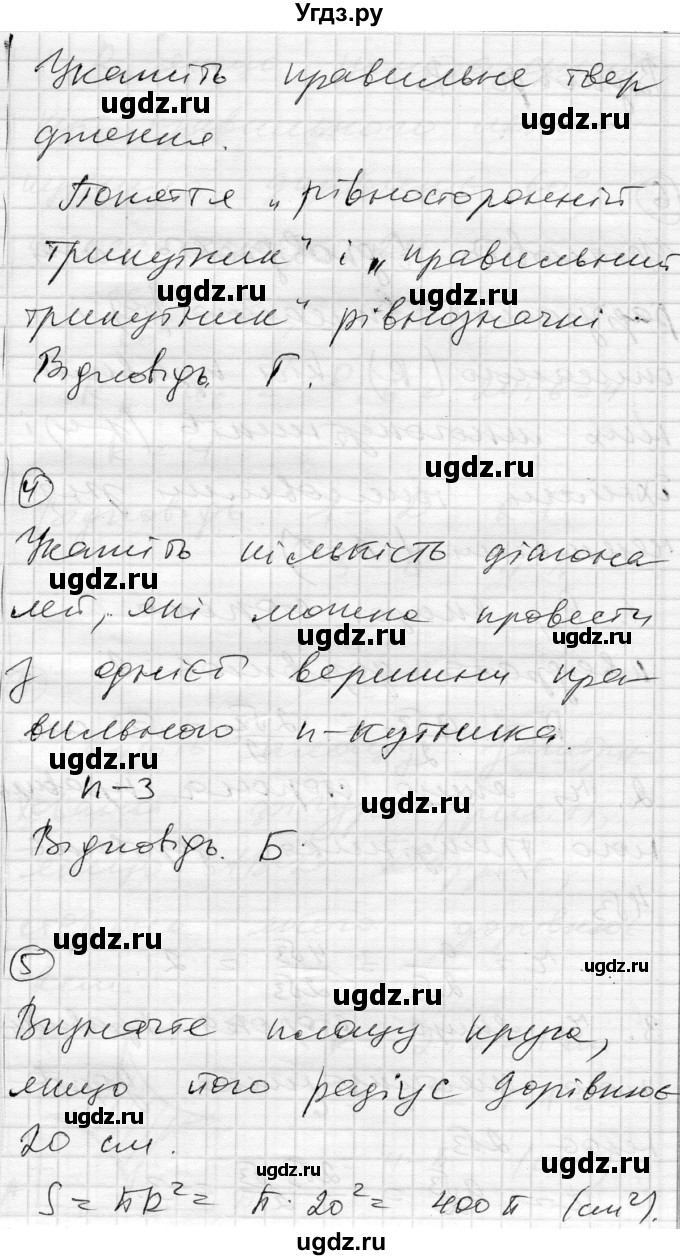 Угдз.ру
Укажіть правильне твер
ugdz.ru ugdz.ru
дження.
Поняття „рівносторонній
трикутник" і „правильний
ugdz.ru ugdz.ru
трикутник" рівнозначні.
Відповідь. Г.
ugdz.ru
4
Укажіть кількість діагона
ugdz.ru
лей, які можна провести
ugdz.ru ugdz.ru
з однієї вершини пра-
вильного n-кутника.
ugdz.ru
n-3
ugdz.ru
Відповідь. Б.
ugdz.ru
5
ugdz.ru
ugdz.ru
Визначте площу круга,
якщо його радіус дорівнює
ugdz.ru
20 см.
ugdz.ru ugdz.ru
S = πR² = π · 20² = 400π (см²).
ugdz.ru